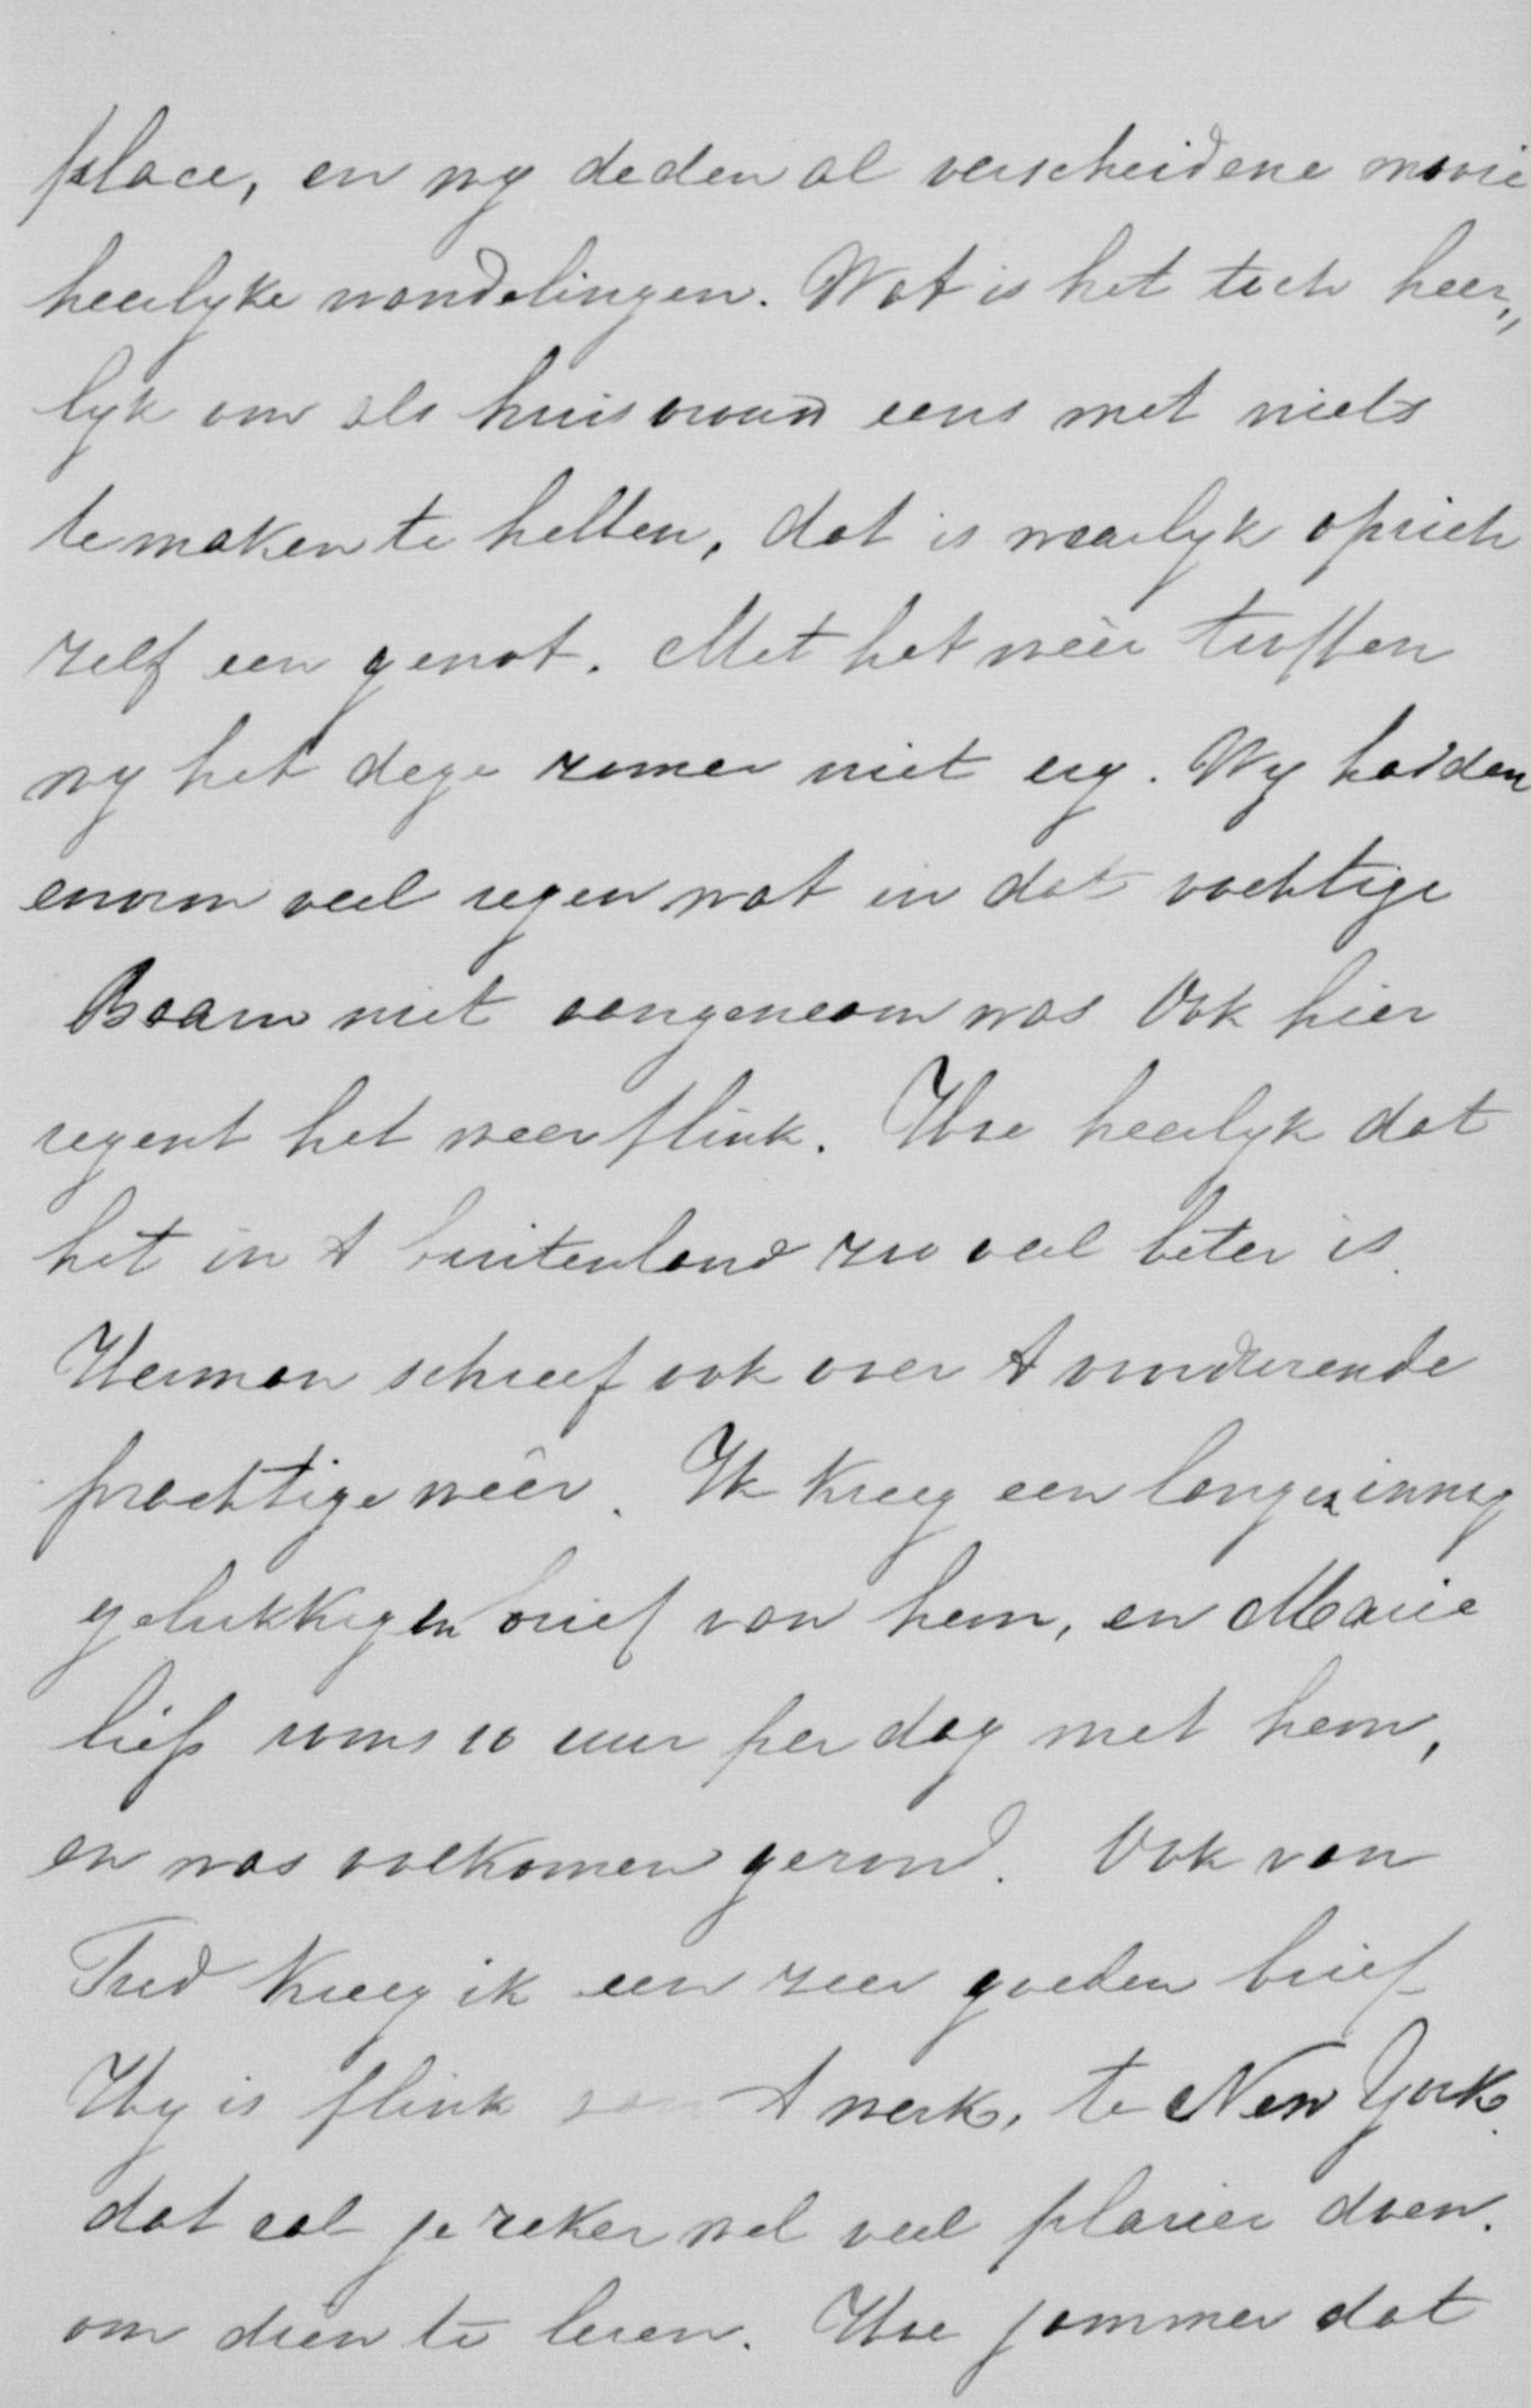 place, en wy deden al verscheidene mooie
heerlyke wandelingen. Wat is het toch heer„
lyk om als huisvrouw eens met niets
te maken te hebben, dat is waarlyk op zich
zelf een genot. Met het weêr troffen
wy het deze zomer niet erg. Wy hadden
enorm veel regen wat in dat vochtige
Baarn niet aangenaam was Ook hier
regent het weer flink. Hoe heerlyk dat
het in 't buitenland zoo veel beter is.
Herman schreef ook over 't voortdurende
prachtige weêr. Ik kreeg een lange innig
gelukkigen brief van hem, en Marie
liep soms 10 uur per dag met hem,
en was volkomen gezond. Ook van
Fred kreeg ik een zeer goeden brief
Hy is flink aan 't werk, te New York.
dat zal je zeker wel veel plazier doen.
om dien te lezen. Hoe jammer dat